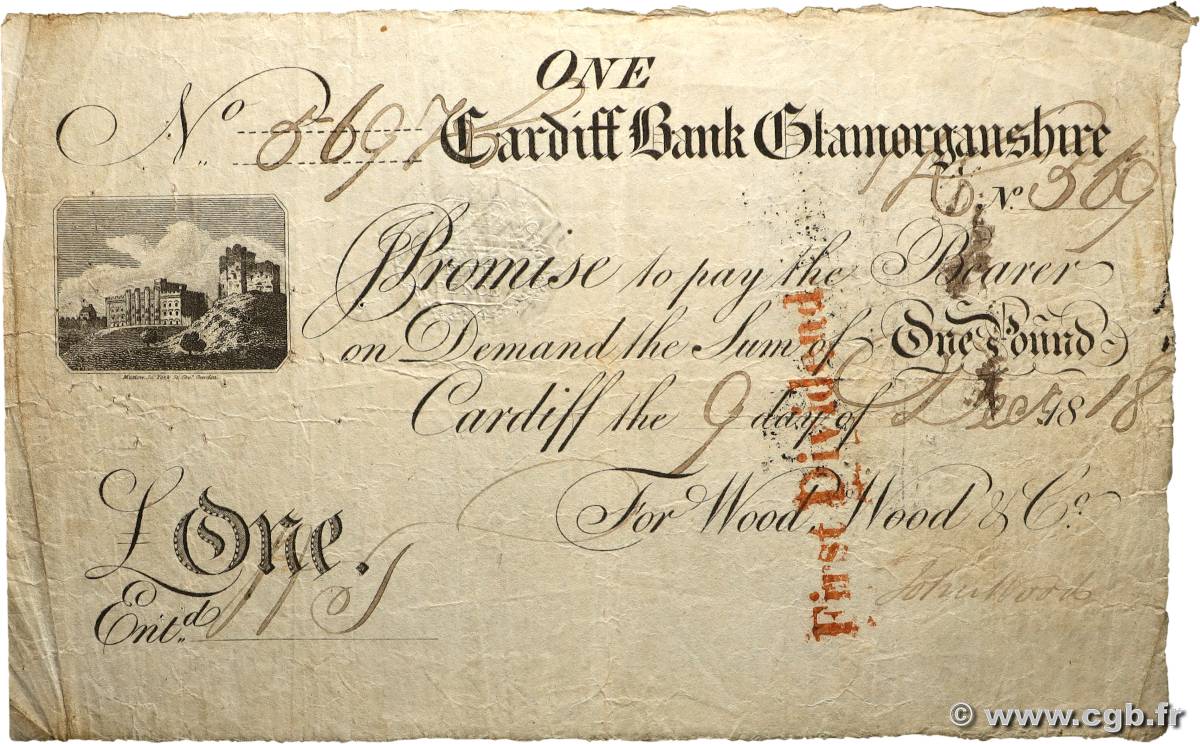 ONE
No 5697 Cardiff Bank Glamorganshire
No 569
I Promise to pay the Bearer
on Demand the Sum of One Pound
Cardiff the 9 day of Decr 1818
For Wood, Wood & Co
£ One.
Entd
John Wood
First Dividend
© www.cgb.fr